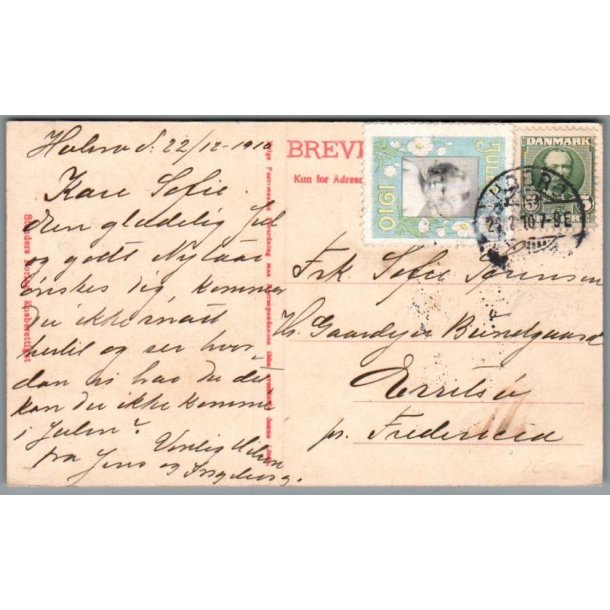 d. 22/12-1910
Kære Sofie.
den glædelig Jul
og godt Nytaar
ønskes dig, kommer
du ikke snart
hertil og ser hvor-
dan vi har du det
kan du ikke komme
i Julen? Venlig Hilsen
fra Jens og Ingeborg.
BREV
Kun for Adress
JUL
1910
DANMARK
Frk Sofie Sørensen
Gaardejer Bundgaard
Erritsø
pr. Fredericia